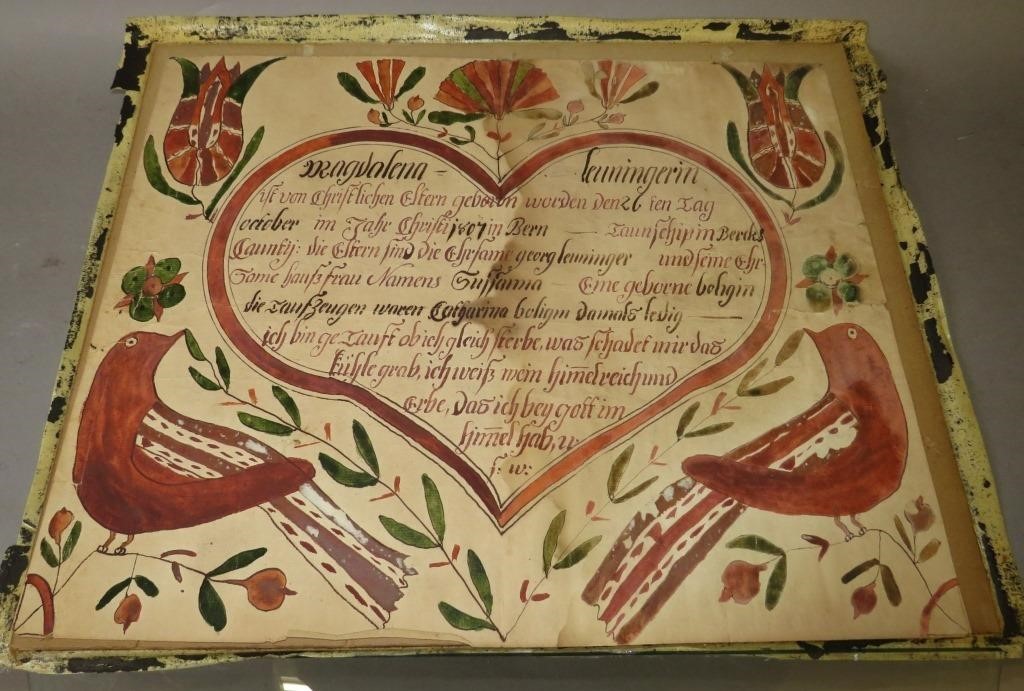 Magdalena - leiningerin
ist von Christlichen Eltern geboren worden den 26 ten Tag
october im Jahr Christi 1807 in Bern — Taunschip in Bercks
Caunty: die Eltern sind die Ehrsame georg leininger und seine Ehr
Same hauß frau Namens Sussanna — Eine geborne boligin
die Taufzeugen waren Catharina boligin damals ledig —
ich bin ge Tauft ob ich gleich sterbe, was schadet mir das
kühle grab, ich weiß mein himmelreich und
Erbe, das ich bey gott im
him̄el hab, u
s: w: